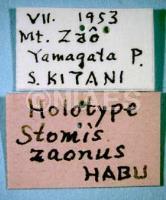 VII. 1953
Mt. Zaô
Yamagata P.
S. KITANI
Holotype
Stomis
zaonus
HABU